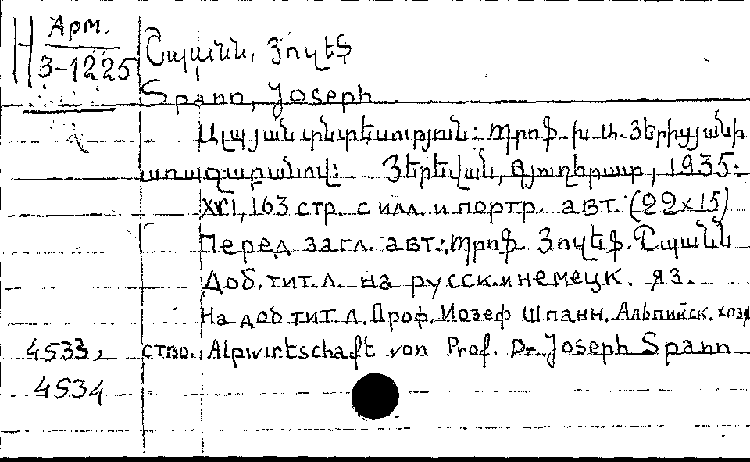 Н Арм.
3-1225
Շպանն, Յոզեֆ
Spann, Joseph
Ալպյան տնտեսություն: Պրոֆ.
առաջաբանով: Յերեվան, Գյուղհրատ, 1935:
XVI, 163 стр. с илл. и портр. авт. (22x15)
Перед загл. авт.: Պրոֆ. Յոզեֆ Շպանն
Доб. тит. л. на русск. и немецк. яз.
На доб. тит. л. Проф. Иозеф Шпанн. Альпийск. хозя
4533, ство. Alpwirtschaft von Prof. Dr. Joseph Spann
4534